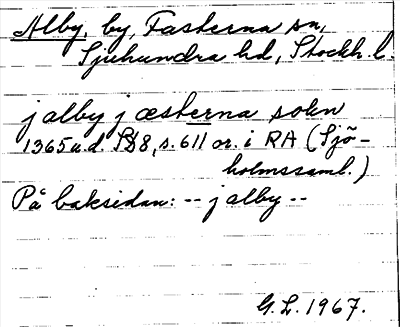 Alby, by, Fasterna sn,
Sjuhundra hd, Stockh. l.
j alby j æsterna sokn
1365 u.d. SD 8, s. 611 or. i RA (Sjö-
holmssaml.)
På baksidan: -- j alby --
G. L. 1967.